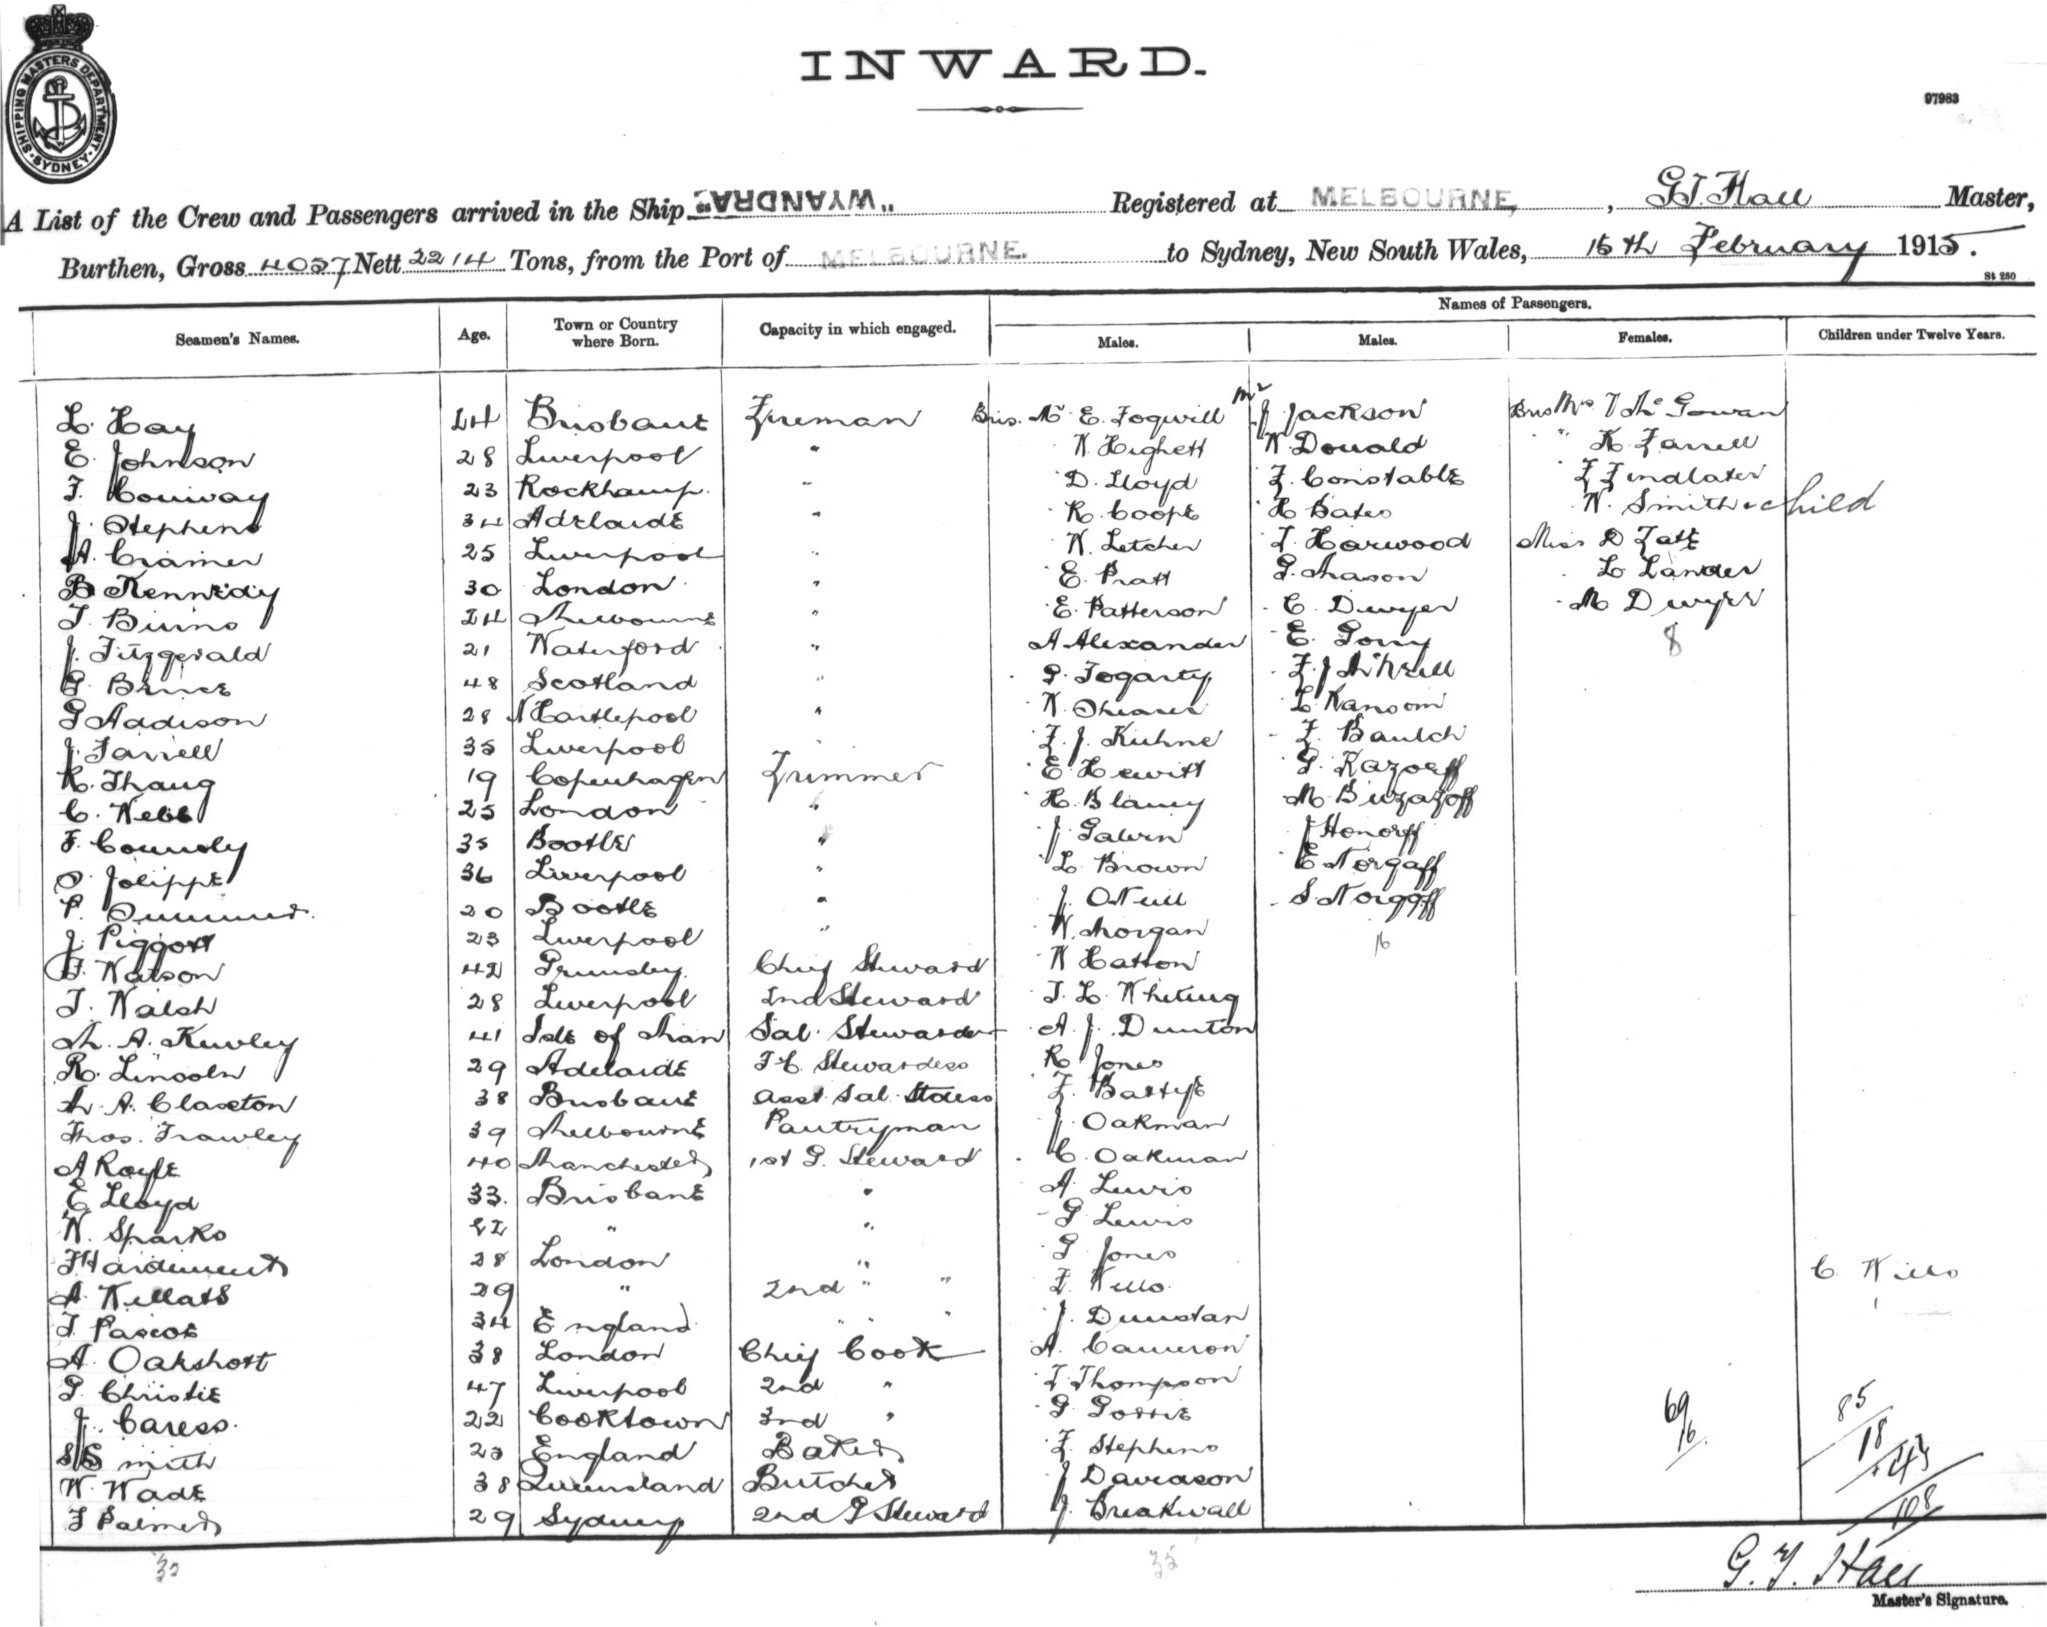 SHIPPING MASTERS DEPARTMENT
SYDNEY
INWARD.
97983
A List of the Crew and Passengers arrived in the Ship "WYANDRA" Registered at MELBOURNE, G.T. Hall Master,
Burthen, Gross 4057 Nett 2214 Tons, from the Port of MELBOURNE. to Sydney, New South Wales, 15th February 1915.
St 250
Names of Passengers.
Seamen's Names. Age. Town or Country where Born. Capacity in which engaged. Males. Males. Females. Children under Twelve Years.
L. Hay 44 Brisbane Fireman Bris. Mr E. Fogwill Mr J Jackson Bris Mrs T McGowan
E. Johnson 28 Liverpool " W. Highett W Donald " K. Farrell
T. Conway 23 Rockhamp. " D. Lloyd F. Constable F Findlater
J. Stephens 34 Adelaide " R. Coope H Bates W. Smith & child
A. Cramer 25 Liverpool " W. Letcher T. Harwood Miss D Tate
B Kennedy 30 London " E. Pratt G. Mason L Lander
T. Burns 24 Melbourne " E. Patterson C. Dwyer M Dwyer
J. Fitzgerald 21 Waterford " A Alexander E. Gorry 8
G. Bruce 48 Scotland " G. Fogarty F. J McNeill
G Addison 28 N Hartlepool " W. Sheares L Ransom
J. Farrell 35 Liverpool " F. J. Kuhne F. Baulch
K. Thaug 19 Copenhagen Trimmer E. Hewitt G. Razoeff
C. Webb 25 London " H. Blamey M Buzazoff
F. Connoly 35 Bootle " J Galvin J Honorff
S. Jolippe 36 Liverpool " L. Brown E Norgaff
P. Summers. 20 Bootle " J. ONeill S Norgaff
J. Piggott 23 Liverpool " W. Morgan 16
F. Watson 42 Grimsby. Chief Steward W Hatton
T. Walsh 28 Liverpool 2nd Steward T. L. Whiting
M. A. Kewley 41 Isle of Man Sal. Stewardess A. J. Dunton
R. Lincoln 29 Adelaide F. C. Stewardess R Jones
M. A. Claxton 38 Brisbane Asst Sal. Stdess F. Battye
Thos. Frawley 39 Melbourne Pantryman J. Oakman
A Royle 40 Manchester 1st G. Steward C. Oakman
E Lloyd 33. Brisbane " A. Lewis
W. Sparks 22 " " G Lewis
F Hardement 28 London " G Jones
A. Kellats 29 " 2nd " " F. Wills. C. Wills
T. Pascoe 34 England " " J. Dunstan 1
A. Oakshott 38 London Chief Cook A. Cameron
G. Christie 47 Liverpool 2nd " T. Thompson
J. Caress. 22 Cooktown 3rd " G Gossie 69 85
S Smith 23 England Baker F. Stephens 16. 18
W. Wade 38 Queensland Butcher J Davidson 43
F Palmer 29 Sydney 2nd G Steward J. Breakwall 108
35 35
G. T. Hall
Master's Signature.